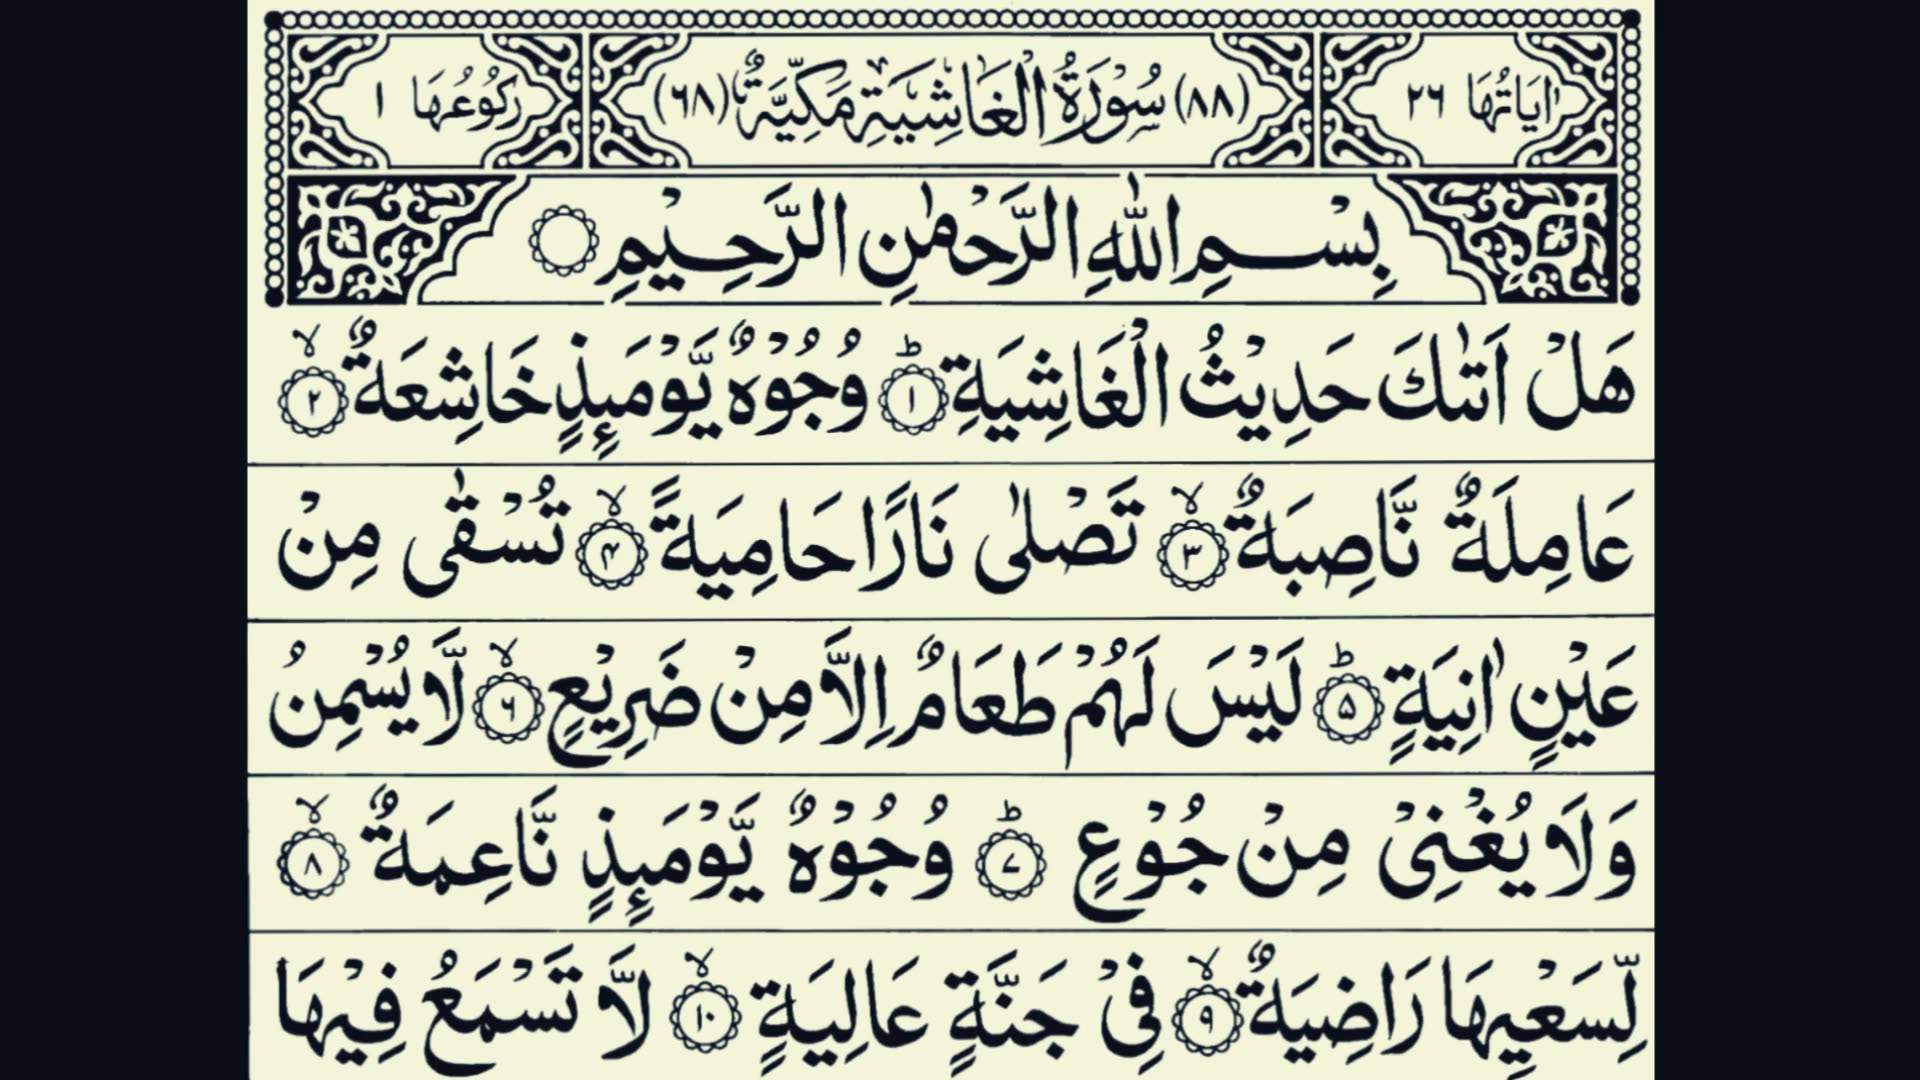 اٰيَاتُهَا ٢٦ (٨٨) سُوْرَةُ الْغَاشِيَةِ مَكِّيَّةٌ (٦٨) رُكُوْعُهَا ١
بِسْمِ اللّٰهِ الرَّحْمٰنِ الرَّحِيْمِ
هَلْ اَتٰىكَ حَدِيْثُ الْغَاشِيَةِ ؕ ۱ وُجُوْهٌ يَّوْمَىِٕذٍ خَاشِعَةٌ ۙ ۲
عَامِلَةٌ نَّاصِبَةٌ ۙ ۳ تَصْلٰى نَارًا حَامِيَةً ۙ ۴ تُسْقٰى مِنْ
عَيْنٍ اٰنِيَةٍ ؕ ۵ لَيْسَ لَهُمْ طَعَامٌ اِلَّا مِنْ ضَرِيْعٍ ۙ ۶ لَّا يُسْمِنُ
وَلَا يُغْنِىْ مِنْ جُوْعٍ ؕ ۷ وُجُوْهٌ يَّوْمَىِٕذٍ نَّاعِمَةٌ ۙ ۸
لِّسَعْيِهَا رَاضِيَةٌ ۙ ۹ فِىْ جَنَّةٍ عَالِيَةٍ ۙ ۱۰ لَّا تَسْمَعُ فِيْهَا